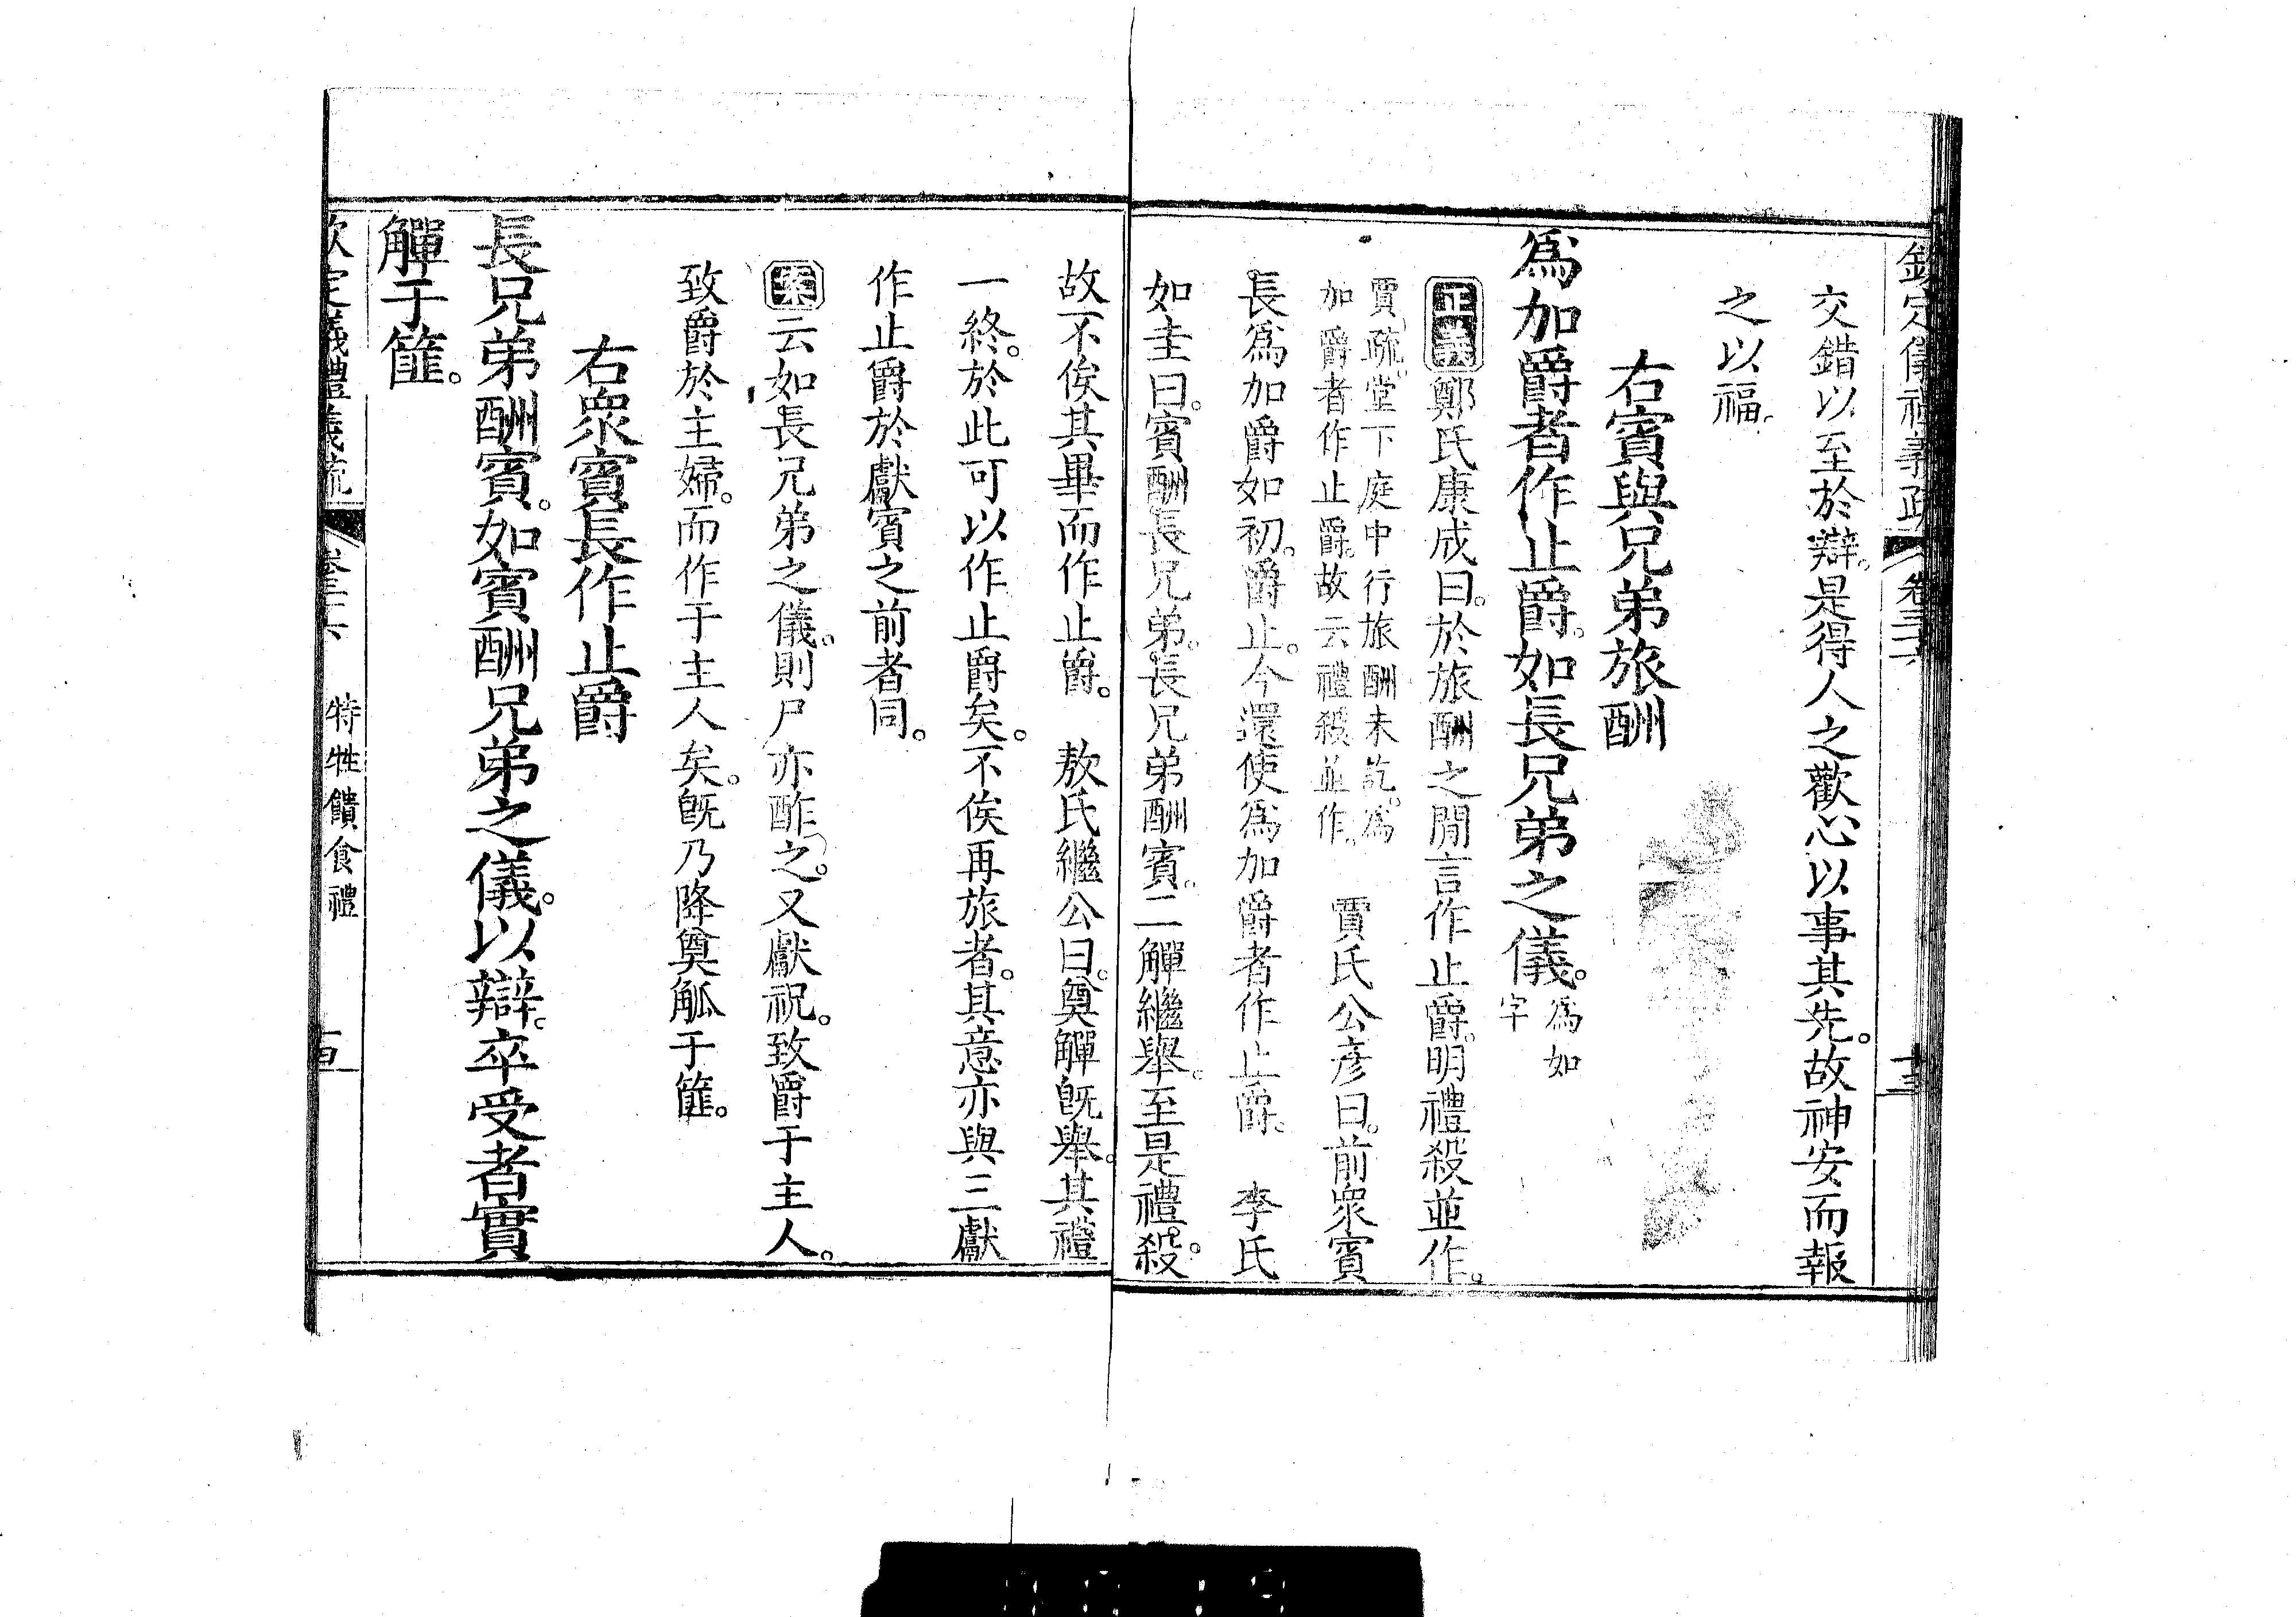 欽定儀禮義疏 卷三十六
交錯以至於辯。是得人之歡心以事其先。故神安而報
之以福。
右賓與兄弟旅酬
爲加爵者作止爵。如長兄弟之儀。爲如字
正義鄭氏康成曰。於旅酬之閒言作止爵。明禮殺並作。
賈疏。堂下庭中行旅酬未訖。爲
加爵者作止爵。故云禮殺並作。
賈氏公彥曰。前衆賓
長爲加爵如初。爵止。今還使爲加爵者作止爵。 李氏
如圭曰。賓酬長兄弟。長兄弟酬賓。二觶繼舉。至是禮殺。
故不俟其畢而作止爵。 敖氏繼公曰。奠觶旣舉。其禮
一終。於此可以作止爵矣。不俟再旅者。其意亦與三獻
作止爵於獻賓之前者同。
案云如長兄弟之儀。則尸亦酢之。又獻祝。致爵于主人。
致爵於主婦。而作于主人矣。旣乃降奠觚于篚。
右衆賓長作止爵
長兄弟酬賓。如賓酬兄弟之儀。以辯。卒受者實
觶于篚。
欽定儀禮義疏 卷三十六 特牲饋食禮